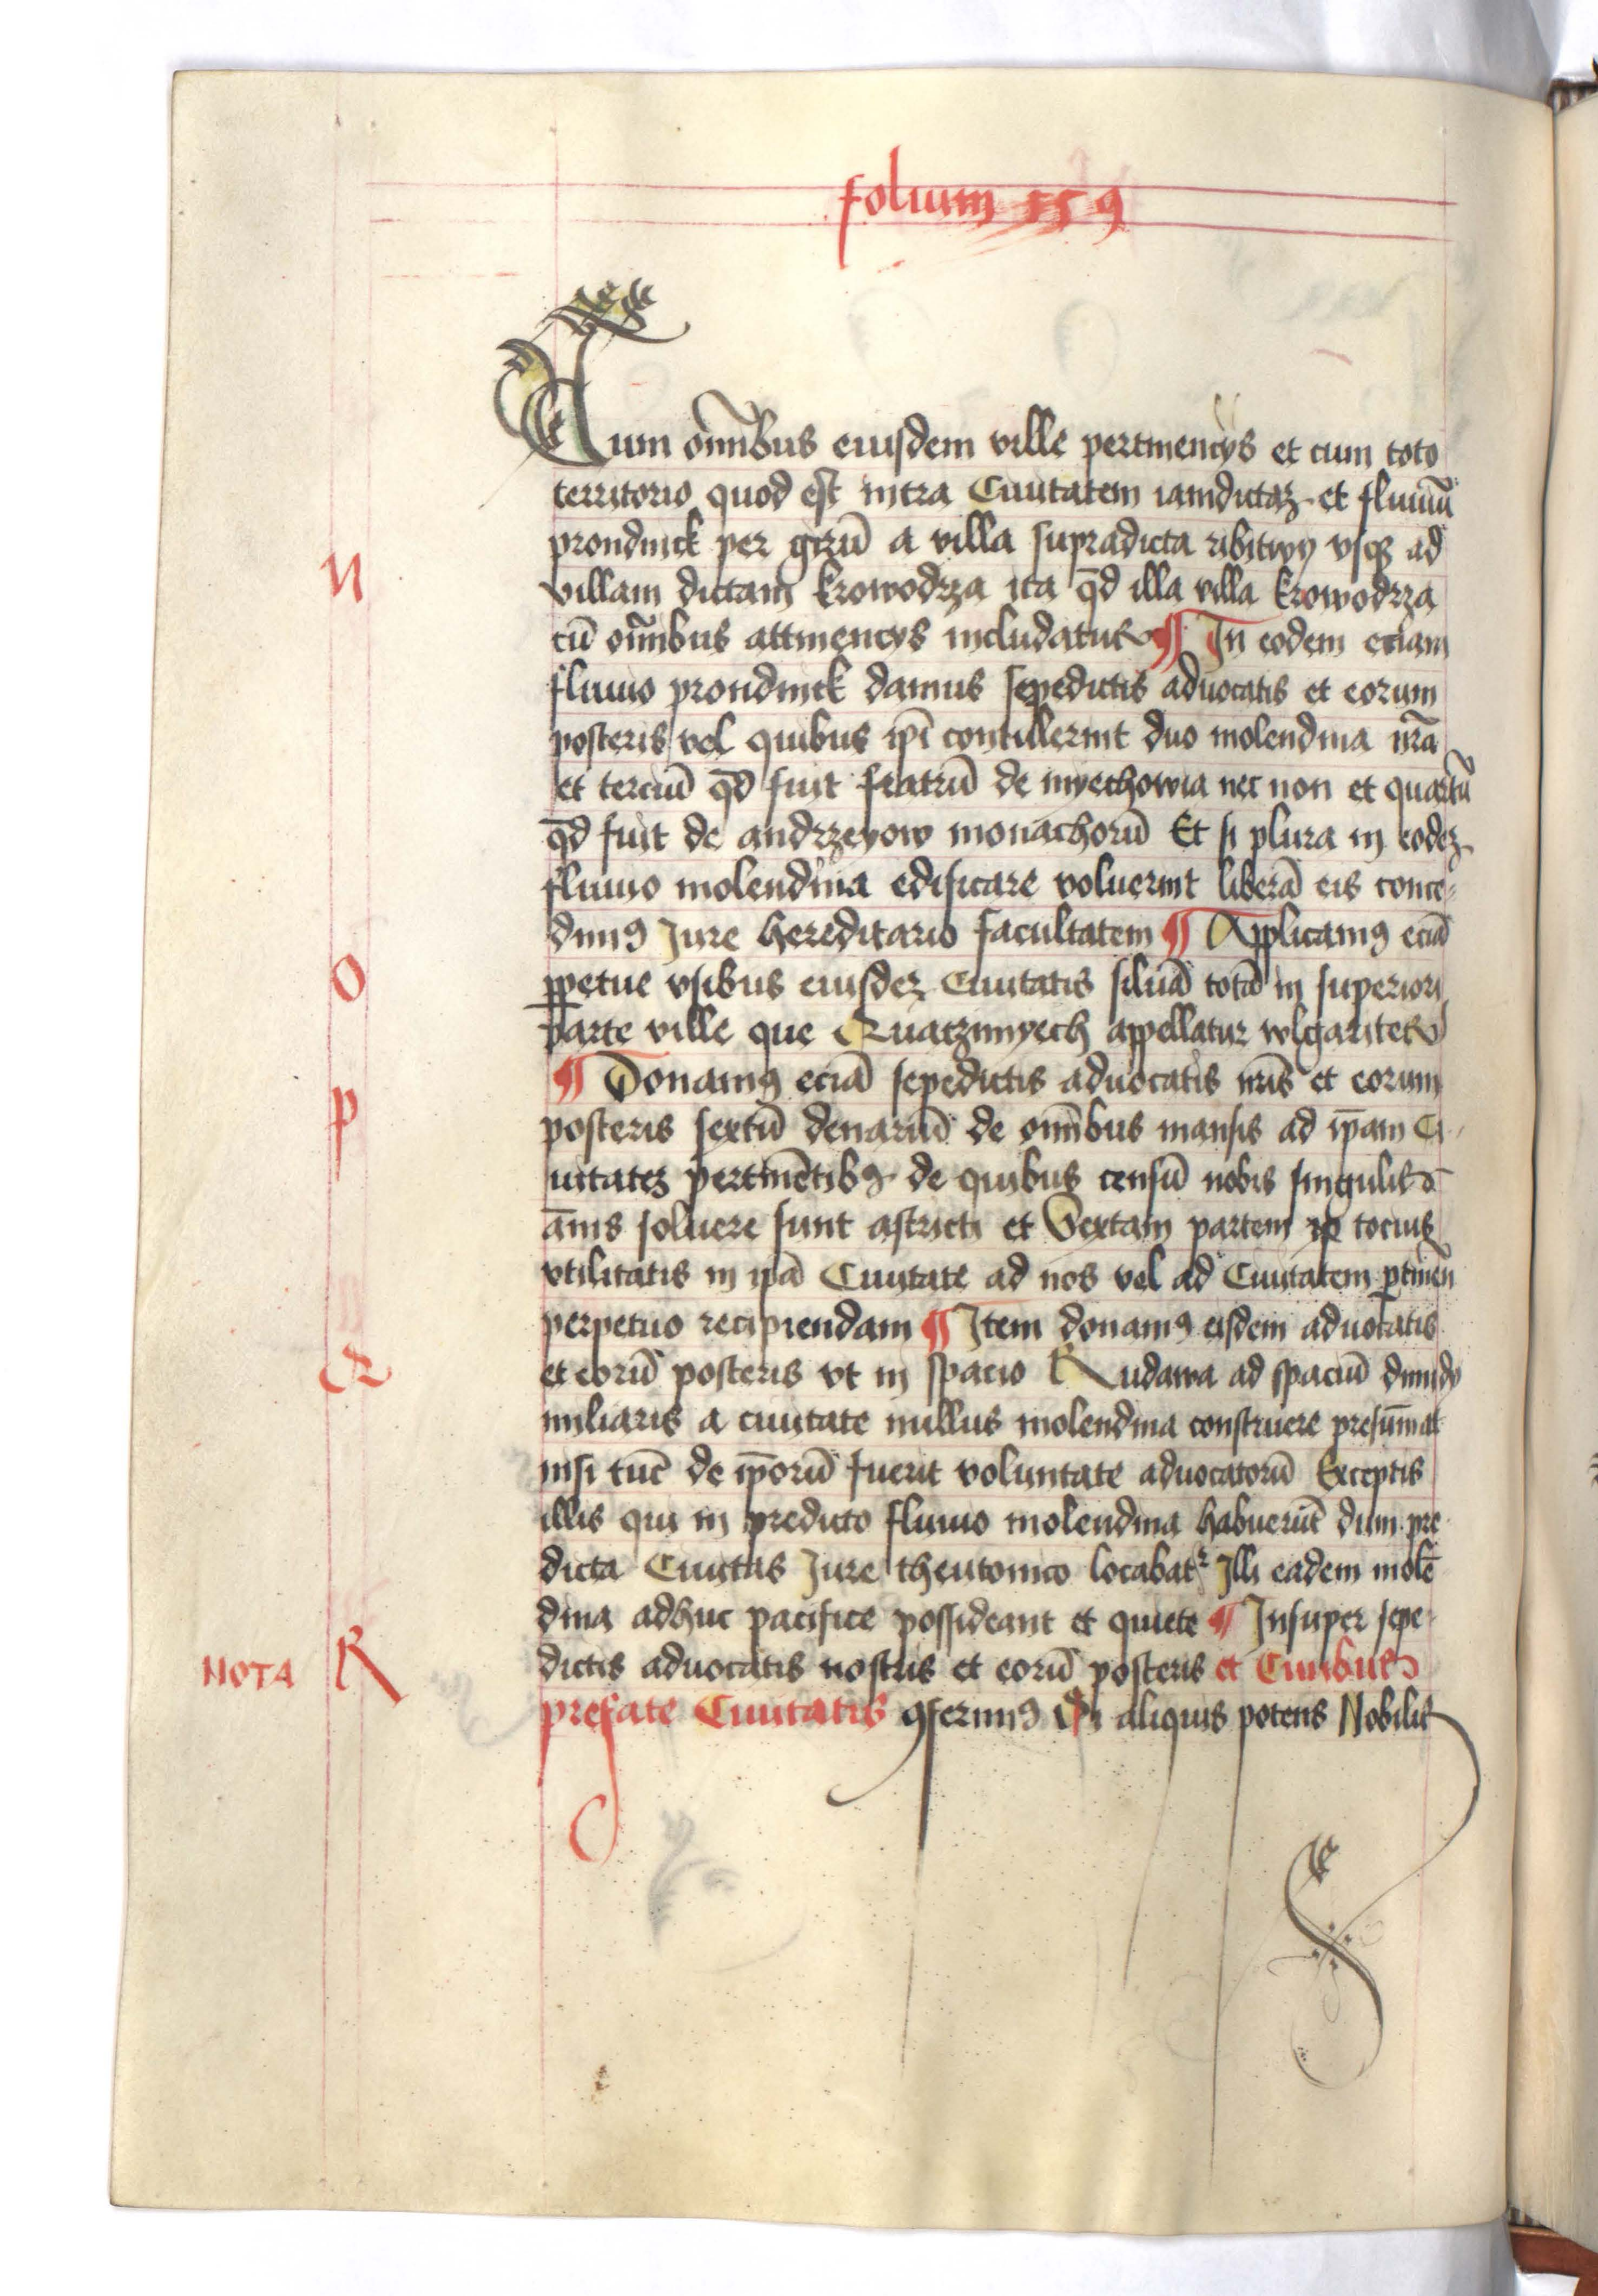 folium 159
Cum om̄ibus eiusdem ville pertinencys et cum toto
territorio quod est intra Ciuitatem iamdictaʒ et fluuiū
prondnick per girū a villa supradicta ribitwy vsqꝫ ad
N
villam dictam krowodrza ita qd̄ illa villa krowodrza
cū om̄ibus attinencys includatur ¶ In eodem eciam
fluuio prondnick damus sepedictis aduocatis et eorum
posteris vel quibus ip̄i contulerint duo molendina nr̄a
et terciū qd̄ fuit fratrū de myechowia nec non et quartū
qd̄ fuit de andrzeyow monachorū Et si plura in eodeʒ
fluuio molendina edificare voluerint liberā eis conce⸗
dimꝰ Jure hereditario facultatem ¶ Applicamꝰ eciā
O
ꝑpetue vsibus eiusdeʒ Ciuitatis siluā totā in superiori
parte ville que Quatzimyech appellatur wlgariter
¶ Donamꝰ eciā sepedictis aduocatis nr̄is et eorum
P
posteris sextū denariū de om̄ibus mansis ad ip̄am Ci
uitateʒ pertinētibꝰ de quibus censū nobis singulis
ānis soluere sunt astricti et Sextam partem tocius
vtilitatis in ip̄a Ciuitate ad nos vel ad Ciuitatem ꝑtinen̄
perpetuo recipiendam ¶ Item donamꝰ eisdem aduocatis
Q
et eorū posteris vt in spacio Rudawa ad spaciū dimidy
miliaris a ciuitate nullus molendina construere presūmat
nisi tūc de ip̄orū fuerit voluntate aduocatorū Exceptis
illis qui in predicto fluuio molendina habuerūt dum pre
dicta Ciuitas Jure theutonico locabatᷣ Illi eadem molē
dina adhuc pacifice possideant et quiete ¶ Insuper sepe
NOTA R
dictis aduocatis nostris et eorū posteris et Ciuibus
prefate Ciuitatis ꝯferimꝰ aliquis potens Nobilis